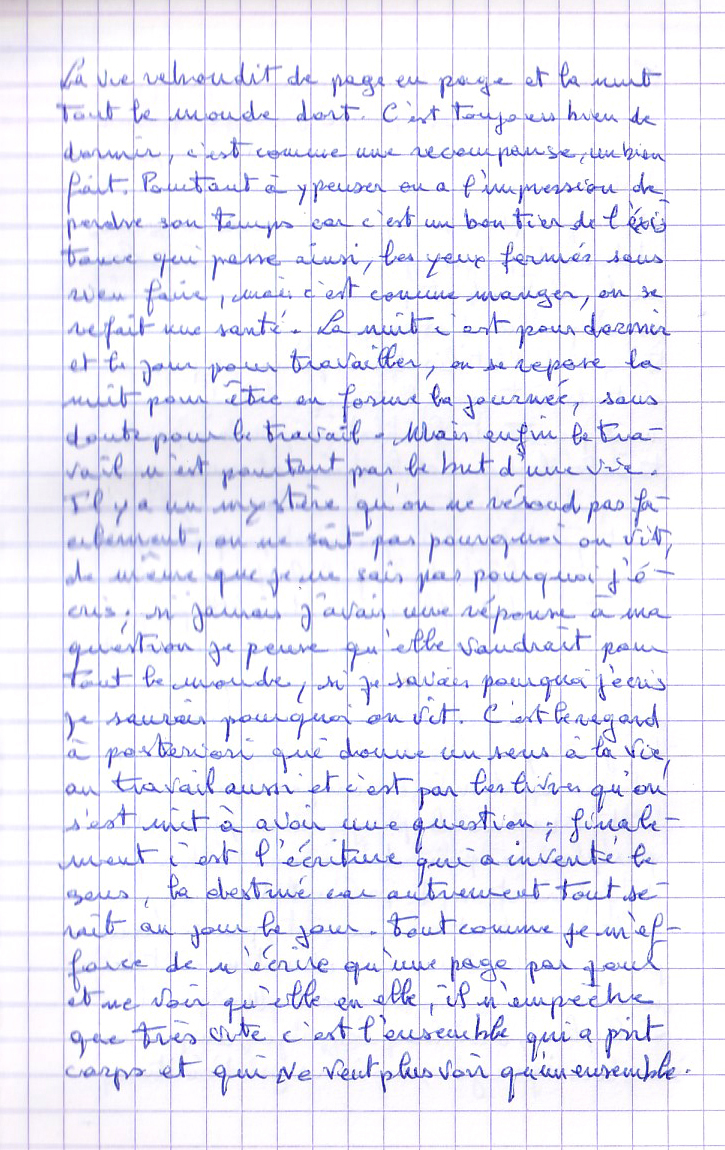 La vie rebondit de page en page et la nuit
tout le monde dort. C'est toujours bien de
dormir, c'est comme une recompanse, un bien
fait. Pourtant à y penser on a l'impression de
perdre son temps car c'est un bon tier de l'éxis
tance qui passe ainsi, les yeux fermés sans
rien faire, mais c'est comme manger, on se
refait une santé. La nuit c'est pour dormir
et le jour pour travailler, on se repose la
nuit pour être en forme la journée, sans
doute pour le travail. Mais enfin le tra-
vail n'est pourtant pas le but d'une vie.
Il y a un mystère qu'on ne résoud pas fa-
cilement, on ne sait pas pourquoi on vit,
de même que je ne sais pas pourquoi j'é-
cris; si jamais j'avais une réponse à ma
question je pense qu'elle vaudrait pour
tout le monde, si je savais pourquoi j'écris
je saurais pourquoi on vit. C'est le regard
à posteriori qui donne un sens à la vie,
au travail aussi et c'est par les livres qu'on
s'est mit à avoir une question; finale-
ment c'est l'écriture qui a inventé le
sens, la destiné car autrement tout se-
rait au jour le jour. Tout comme je m'ef-
force de n'écrire qu'une page par jour
et ne voir qu'elle en elle, il n'empêche
que très vite c'est l'ensemble qui a prit
corps et qui ne veut plus voir qu'un ensemble.